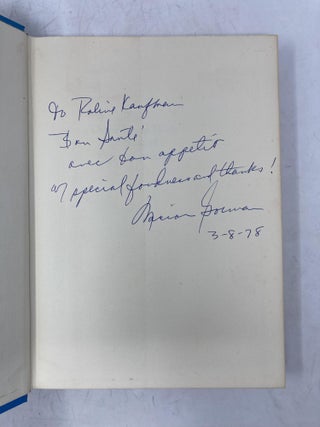 To Roline Kaufman
Bon Santé
avec bon appetit
w/ special fondness and thanks!
Marion Gorman
3-8-78